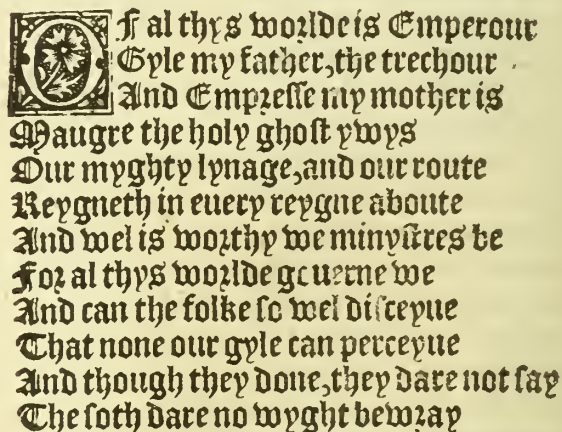 Of al thys worlde is Emperour
Gyle my father, the trechour
And Empresse my mother is
Maugre the holy ghost ywys
Our myghty lynage, and our route
Reygneth in euery reygne aboute
And wel is worthy we minystres be
For al thys worlde gouerne we
And can the folke so wel disceyue
That none our gyle can perceyue
And though they done, they dare not say
The soth dare no wyght bewray